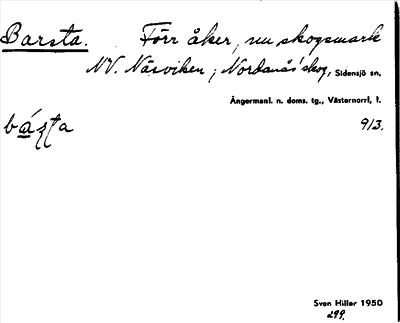 Barsta. Förr åker, nu skogsmark
NV. Näsviken; Nordanås' skog, Sidensjö sn,
Ångermanl. n. doms. tg., Västernorrl. l.
913.
Sven Hiller 1950
299.